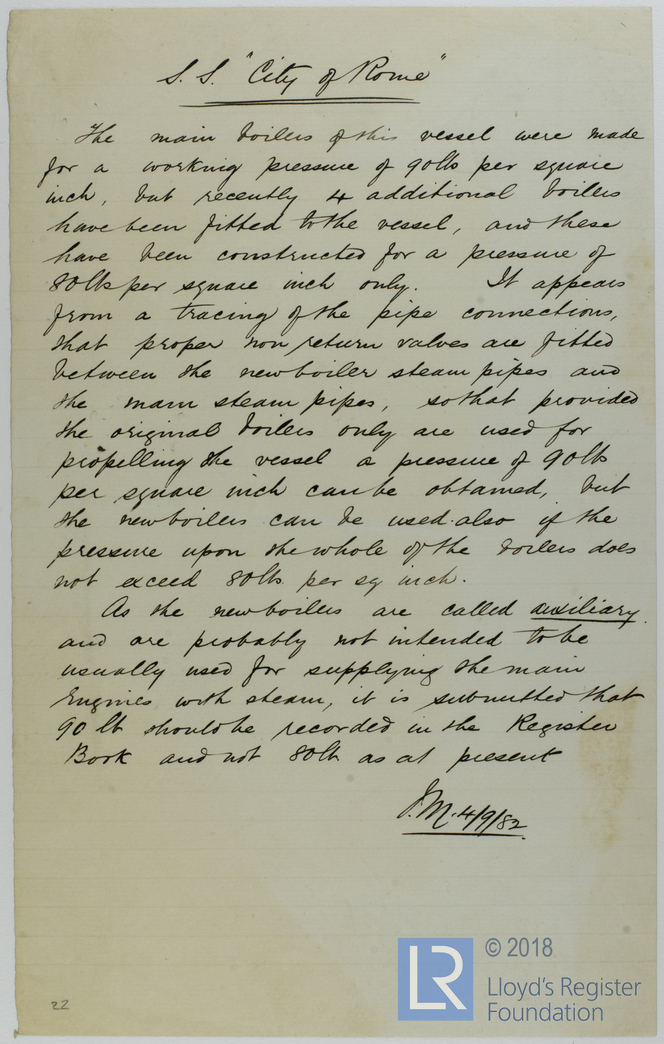 S. S. "City of Rome"
The main boilers of this vessel were made
for a working pressure of 90lbs per square
inch, but recently 4 additional boilers
have been fitted to the vessel, and these
have been constructed for a pressure of
80lbs per square inch only. It appears
from a tracing of the pipe connections,
that proper non return valves are fitted
between the new boiler steam pipes and
the main steam pipes, so that provided
the original boilers only are used for
propelling the vessel a pressure of 90lbs
per square inch can be obtained, but
the new boilers can be used also if the
pressure upon the whole of the boilers does
not exceed 80lbs per sq inch.
As the new boilers are called auxiliary
and are probably not intended to be
usually used for supplying the main
Engines with steam, it is submitted that
90 lb should be recorded in the Register
Book and not 80lb as at present
J.M. 4/9/82
22
LR
© 2018
Lloyd's Register
Foundation